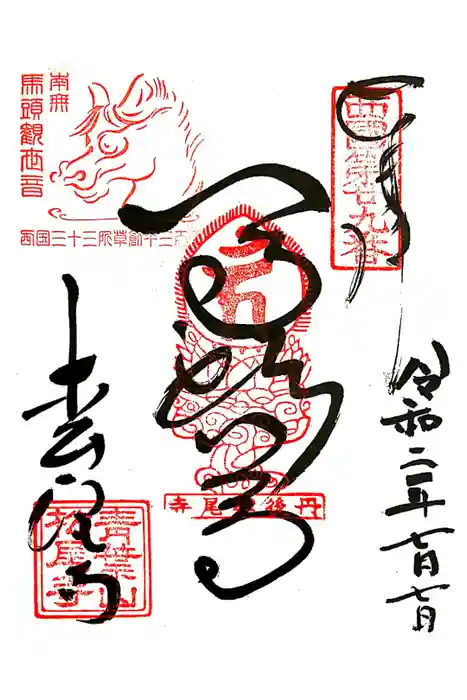 奉拝
西国第廿九番
令和二年七月七日
馬頭尊
丹後松尾寺
南無
馬頭観世音
西国三十三所草創千三百
松尾寺
青葉山
松尾寺